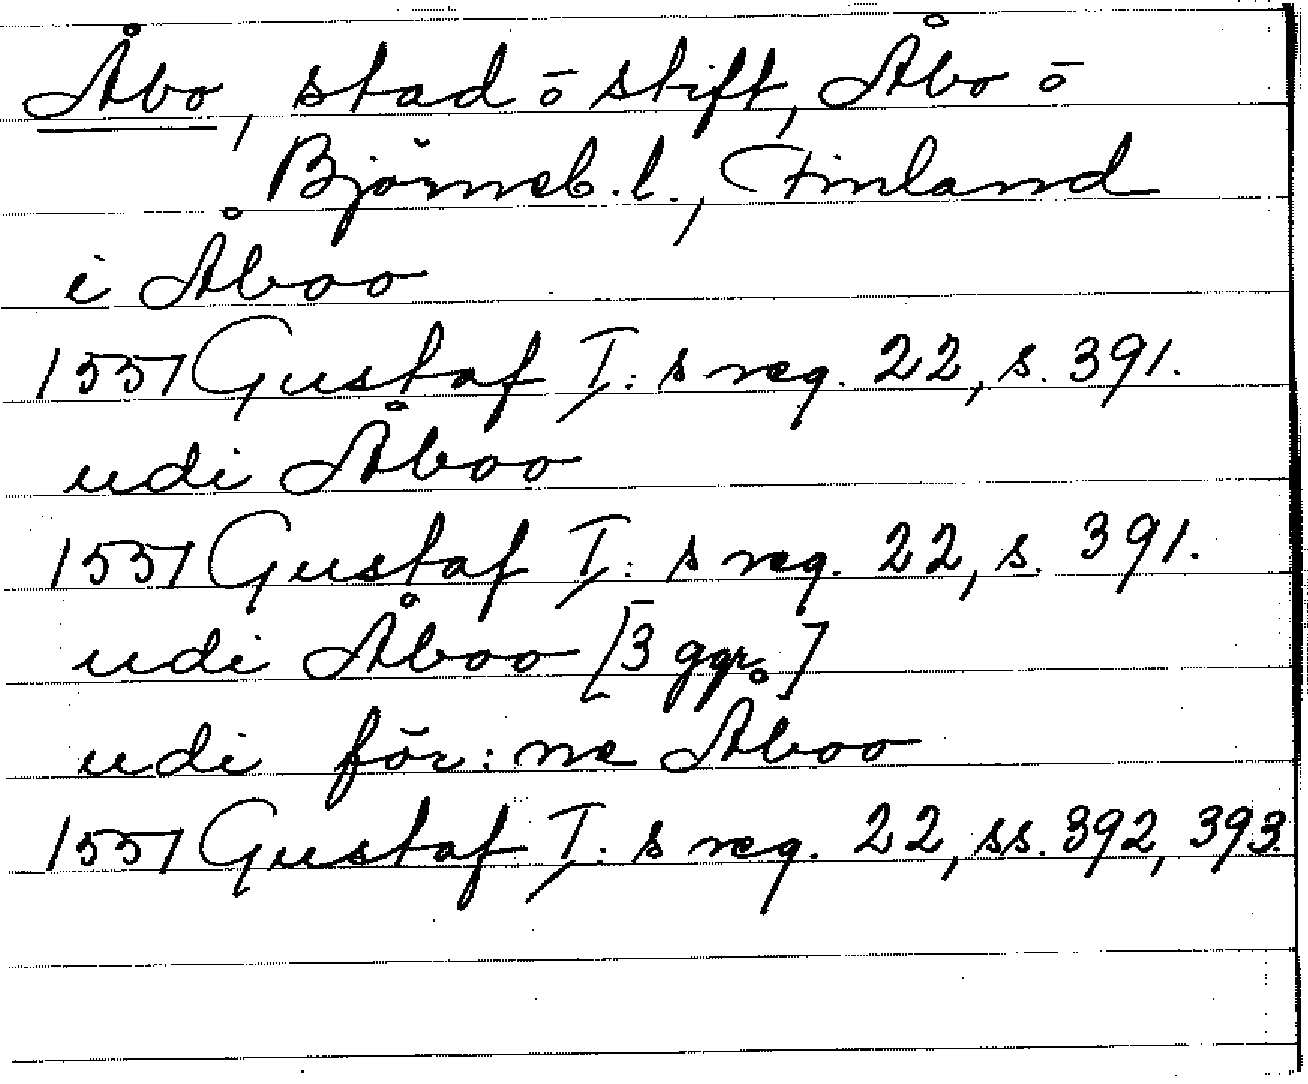 Åbo, stad ō stift, Åbo ō
Björneb. l., Finland
i Åboo
1551 Gustaf I: s reg. 22, s. 391.
udi Åboo
1551 Gustaf I: s reg. 22, s. 391.
udi Åboo [3 ggr.]
udi för: ne Åboo
1551 Gustaf I: s reg. 22, ss. 392, 393.